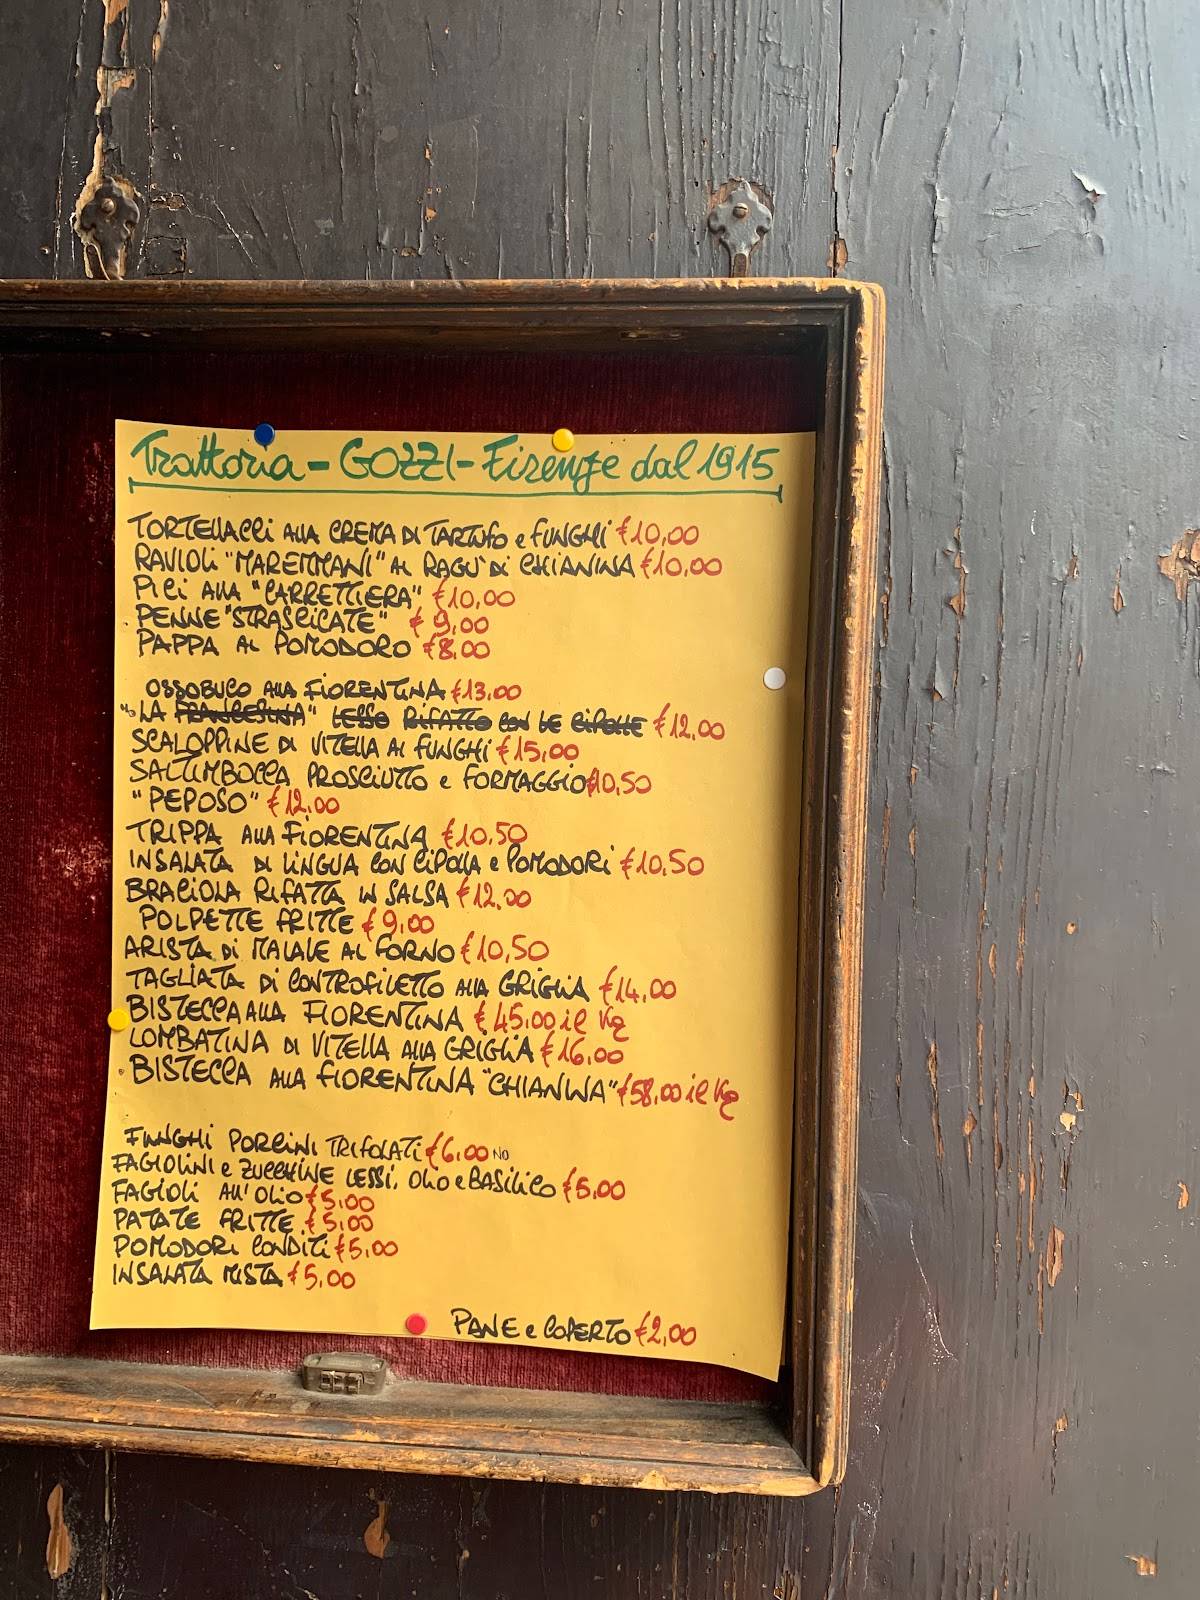 Trattoria - GOZZI - Firenze dal 1915
TORTELLACCI ALLA CREMA DI TARTUFO e FUNGHI €10,00
RAVIOLI "MAREMMANI" AL RAGU' DI CHIANINA €10,00
PICI ALLA "CARRETTIERA" €10,00
PENNE "STRASCICATE" €9,00
PAPPA AL POMODORO €8,00
OSSOBUCO ALLA FIORENTINA €13,00
"LA FRANCESINA" LESSO RIFATTO CON LE CIPOLLE €12,00
SCALOPPINE DI VITELLA AI FUNGHI €15,00
SALTIMBOCCA PROSCIUTTO e FORMAGGIO €10,50
"PEPOSO" €12,00
TRIPPA ALLA FIORENTINA €10,50
INSALATA DI LINGUA CON CIPOLLA e POMODORI €10,50
BRACIOLA RIFATTA IN SALSA €12,00
POLPETTE FRITTE €9,00
ARISTA DI MAIALE AL FORNO €10,50
TAGLIATA DI CONTROFILETTO ALLA GRIGLIA €14,00
BISTECCA ALLA FIORENTINA €45,00 il Kg
LOMBATINA DI VITELLA ALLA GRIGLIA €16,00
BISTECCA ALLA FIORENTINA "CHIANINA" €58,00 il Kg
FUNGHI PORCINI TRIFOLATI €6,00 NO
FAGIOLINI e ZUCCHINE LESSI, OLIO e BASILICO €5,00
FAGIOLI ALL'OLIO €5,00
PATATE FRITTE €5,00
POMODORI CONDITI €5,00
INSALATA MISTA €5,00
PANE e COPERTO €2,00